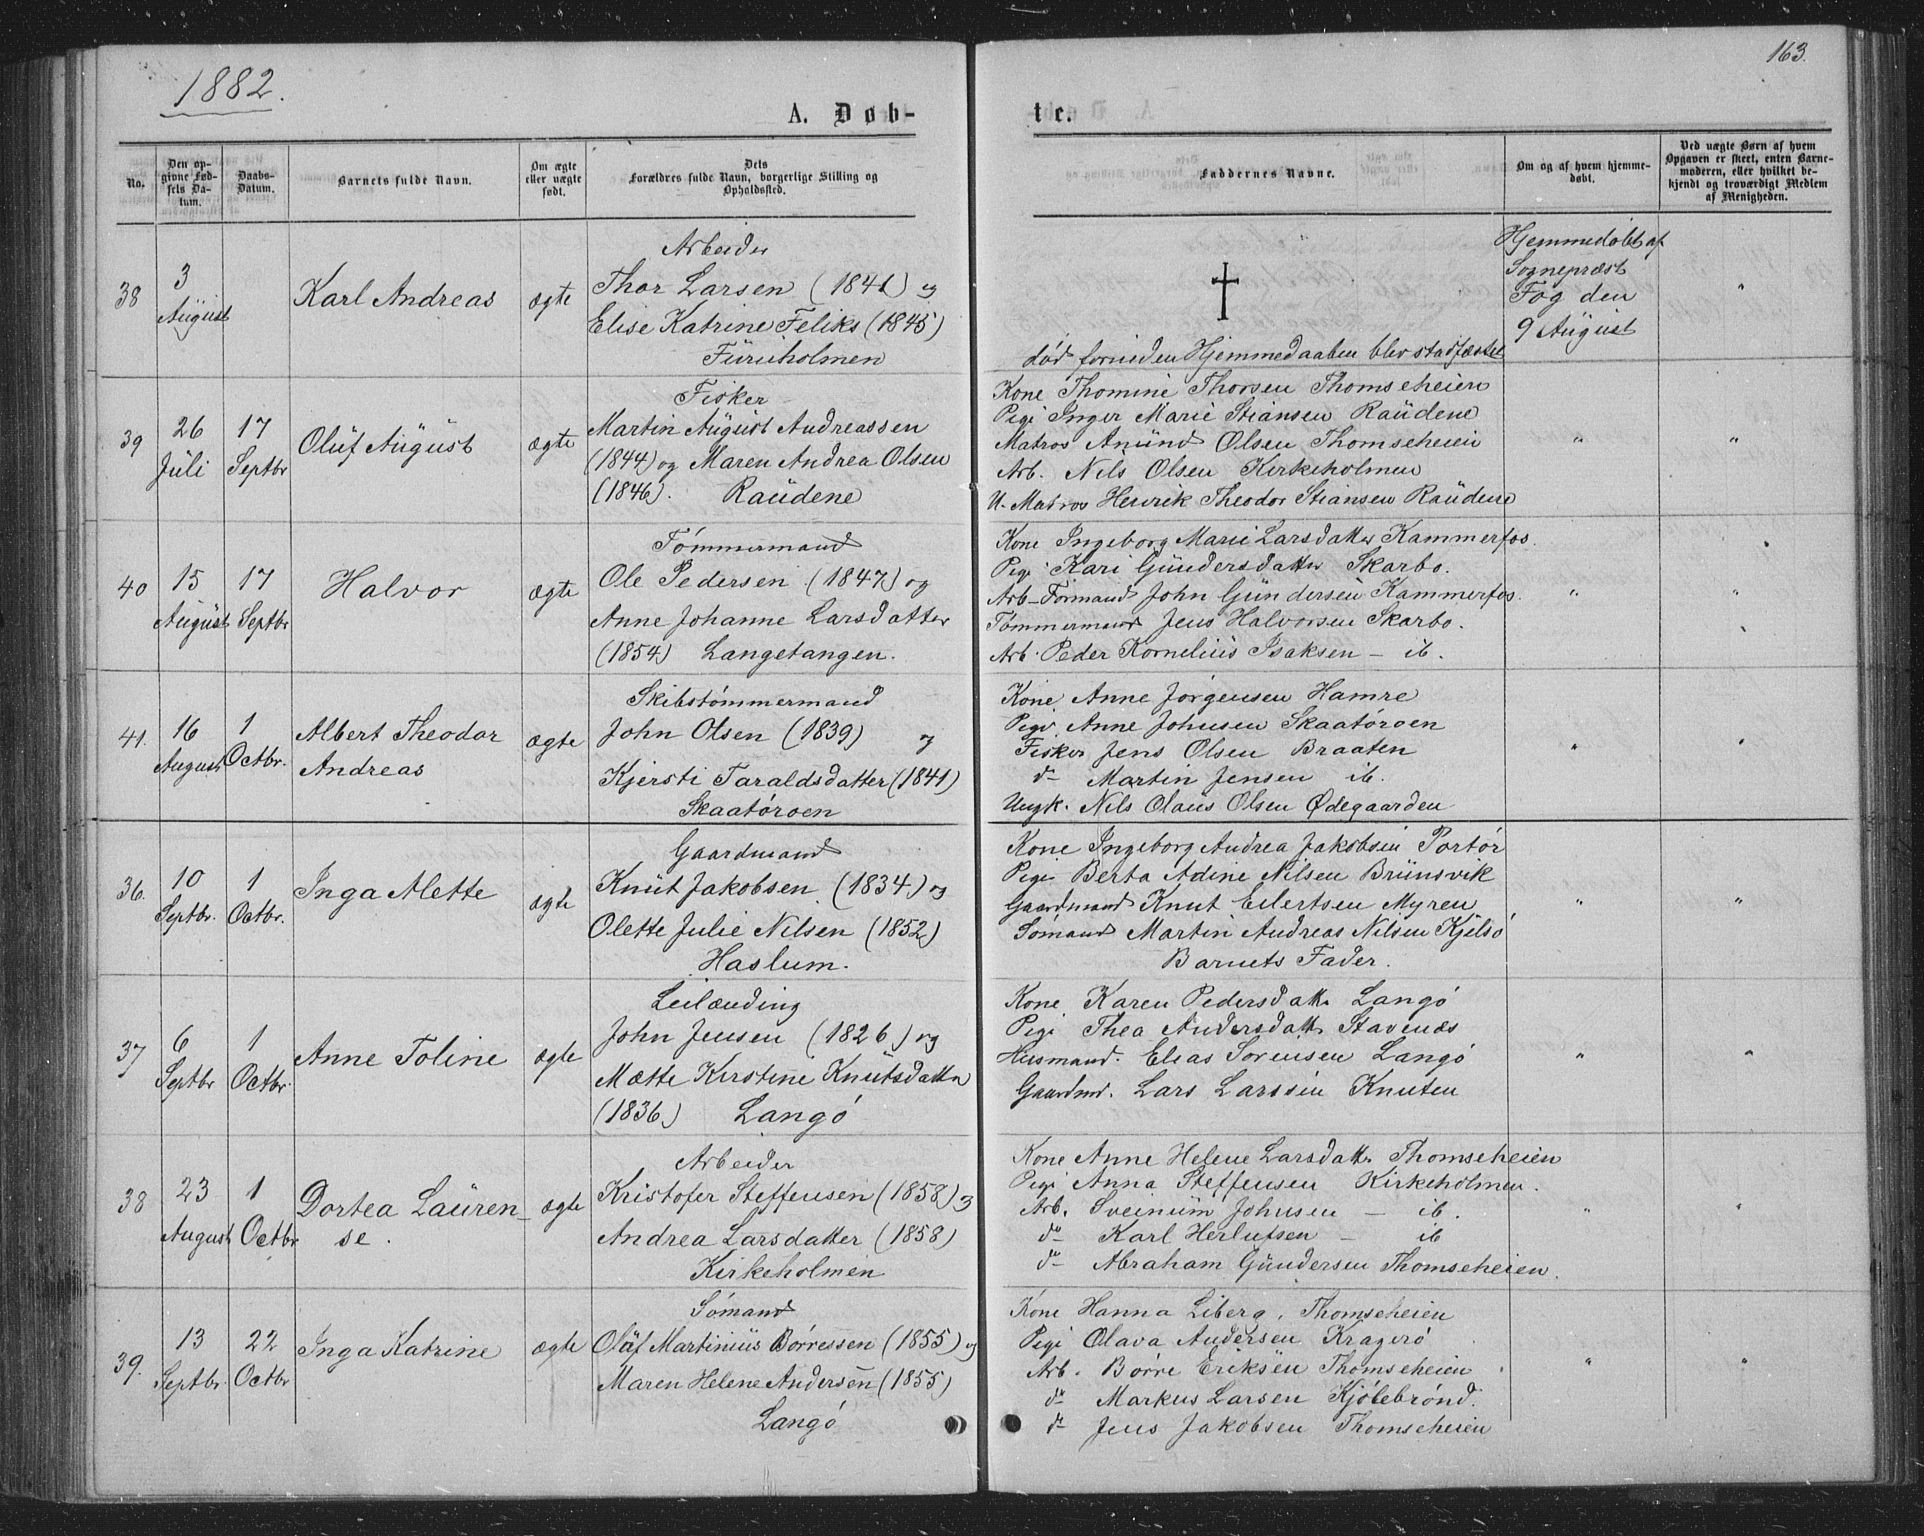 1882.
163.
A. Døb-
te.
No.
Den op-
givne Fød-
sels Da-
tum.
Daabs-
Datum.
Barnets fulde Navn.
Om ægte
eller uægte
født.
Dets
Forældres fulde Navn, borgerlige Stilling og
Opholdssted.
Faddernes Navne.
Om og af hvem hjemme-
døbt.
Ved uægte Børn af hvem
Opgaven er skeet, enten Barne-
moderen, eller hvilket be-
kjendt og troværdigt Medlem
af Menigheden.
38
3
August
Karl Andreas
ægte
Arbeider
Thor Larsen (1841) og
Elise Katrine Feliks (1845)
Furuholmen
†
død forinden Hjemmedaaben blev stadfæstet
Hjemmedøbt af
Sognepræst
Fog den
9 August
"
39
26
Juli
17
Septbr
Oluf August
ægte
Fisker
Martin August Andreassen
(1844) og Maren Andrea Olsen
(1846). Raudene
Kone Thomine Thorsen Thomseheien
Pigi Inger Marie Stiansen Raudene
Matros Anund Olsen Thomseheien
Arb. Nils Olsen Kirkeholmen
U. Matros Henrik Theodor Stiansen Raudene
"
"
40
15
August
17
Septbr
Halvor
ægte
Tømmermand
Ole Pedersen (1847) og
Anne Johanne Larsdatter
(1854) Langetangen.
Kone Ingeborg Marie Larsdatter Kammerfos.
Pigi Kari Gundersdatter Skarbo.
Arb-Formand John Gundersen Kammerfos.
Tømmermand Jens Halvorsen Skarbo.
Arb. Peder Kornelius Isaksen — ib.
"
"
41.
16
August
1
Octbr.
Albert Theodor
Andreas
ægte
Skibstømmermand
John Olsen (1839) og
Kjersti Taraldsdatter (1841)
Skaatøroen
Kone Anne Jørgensen Hamre
Pigi Anne Johnsen Skaatøroen
Fisker Jens Olsen Braaten
do Martin Jensen ib.
Ungk. Nils Olaus Olsen Ødegaarden
"
"
36.
10
Septbr.
1
Octbr.
Inga Alette
ægte
Gaardmand
Knut Jakobsen (1834) og
Olette Julie Nilsen (1852)
Haslum.
Kone Ingeborg Andrea Jakobsen Portør
Pigi Berta Adine Nilsen Brunsvik
Gaardmand Knut Eilertsen Myren
Sømand Martin Andreas Nilsen Kjelsø
Barnets Fader.
"
"
37
6
Septbr
1
Octbr.
Anne Toline
ægte
Leilænding
John Jensen (1826) og
Mætte Kirstine Knutsdattr
(1836) Langø
Kone Karen Pedersdattr Langø
Pigi Thea Andersdattr Stavenæs
Husmand. Elias Sørensen Langø
Gaardmd. Lars Larssen Knuten
"
"
38
23
August
1
Octbr
Dortea Lauren-
se.
ægte
Arbeider
Kristofer Steffensen (1858) og
Andrea Larsdatter (1858)
Kirkeholmen
Kone Anne Helene Larsdattr Thomseheien
Pigi Anna Steffensen Kirkeholmen.
Arb. Sveinum Johnsen — ib.
do Karl Herlufsen — ib
do Abraham Gundersen Thomseheien.
"
"
39.
13
Septbr.
22
Octbr
Inga Katrine
ægte
Sømand
Olaf Martinius Børresen (1855) og
Maren Helene Andersen (1855)
Langø
Kone Hanna Liberg. Thomseheien
Pigi Olava Andersen Kragerø
Arb. Børre Eriksen Thomseheien
do Markus Larsen Kjølebrønd.
do Jens Jakobsen Thomseheien
"
"